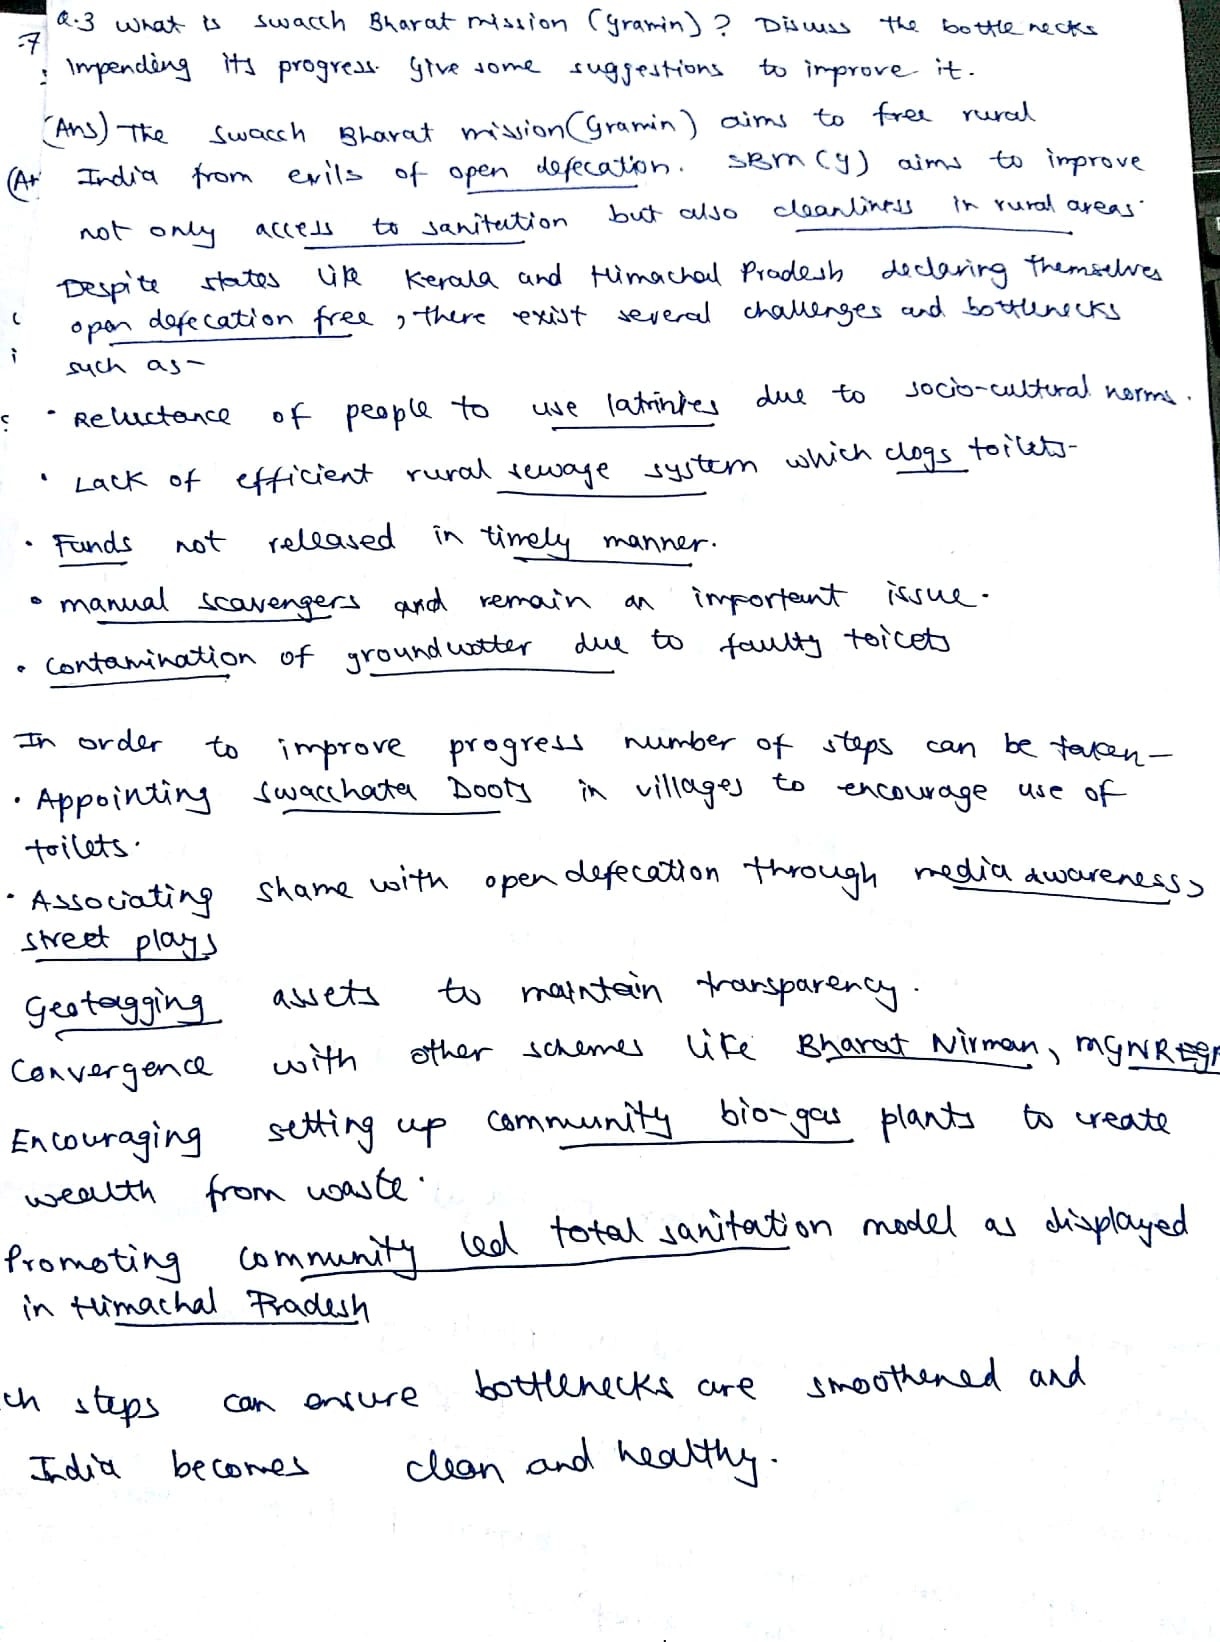 Q.3 What is Swacch Bharat mission (gramin)? Discuss the bottlenecks
-7
Impending its progress. Give some suggestions to improve it.
(Ans) The Swacch Bharat mission (Gramin) aims to free rural
(A+ India from evils of open defecation. SBM (G) aims to improve
not only access to sanitation but also cleanliness in rural areas.
Despite states like Kerala and Himachal Pradesh declaring themselves
open defecation free, there exist several challenges and bottlenecks
such as-
• Reluctance of people to use latrines due to socio-cultural norms.
• Lack of efficient rural sewage system which clogs toilets-
• Funds not released in timely manner.
• manual scavengers and remain an important issue.
• contamination of groundwater due to faulty toilets
In order to improve progress number of steps can be taken-
• Appointing Swacchata Doots in villages to encourage use of
toilets.
• Associating shame with open defecation through media awareness,
street plays
Geotagging assets to maintain transparency.
Convergence with other schemes like Bharat Nirman, MGNREGA
Encouraging setting up community bio-gas plants to create
wealth from waste.
Promoting community led total sanitation model as displayed
in Himachal Pradesh
ch steps can ensure bottlenecks are smoothened and
India becomes clean and healthy.